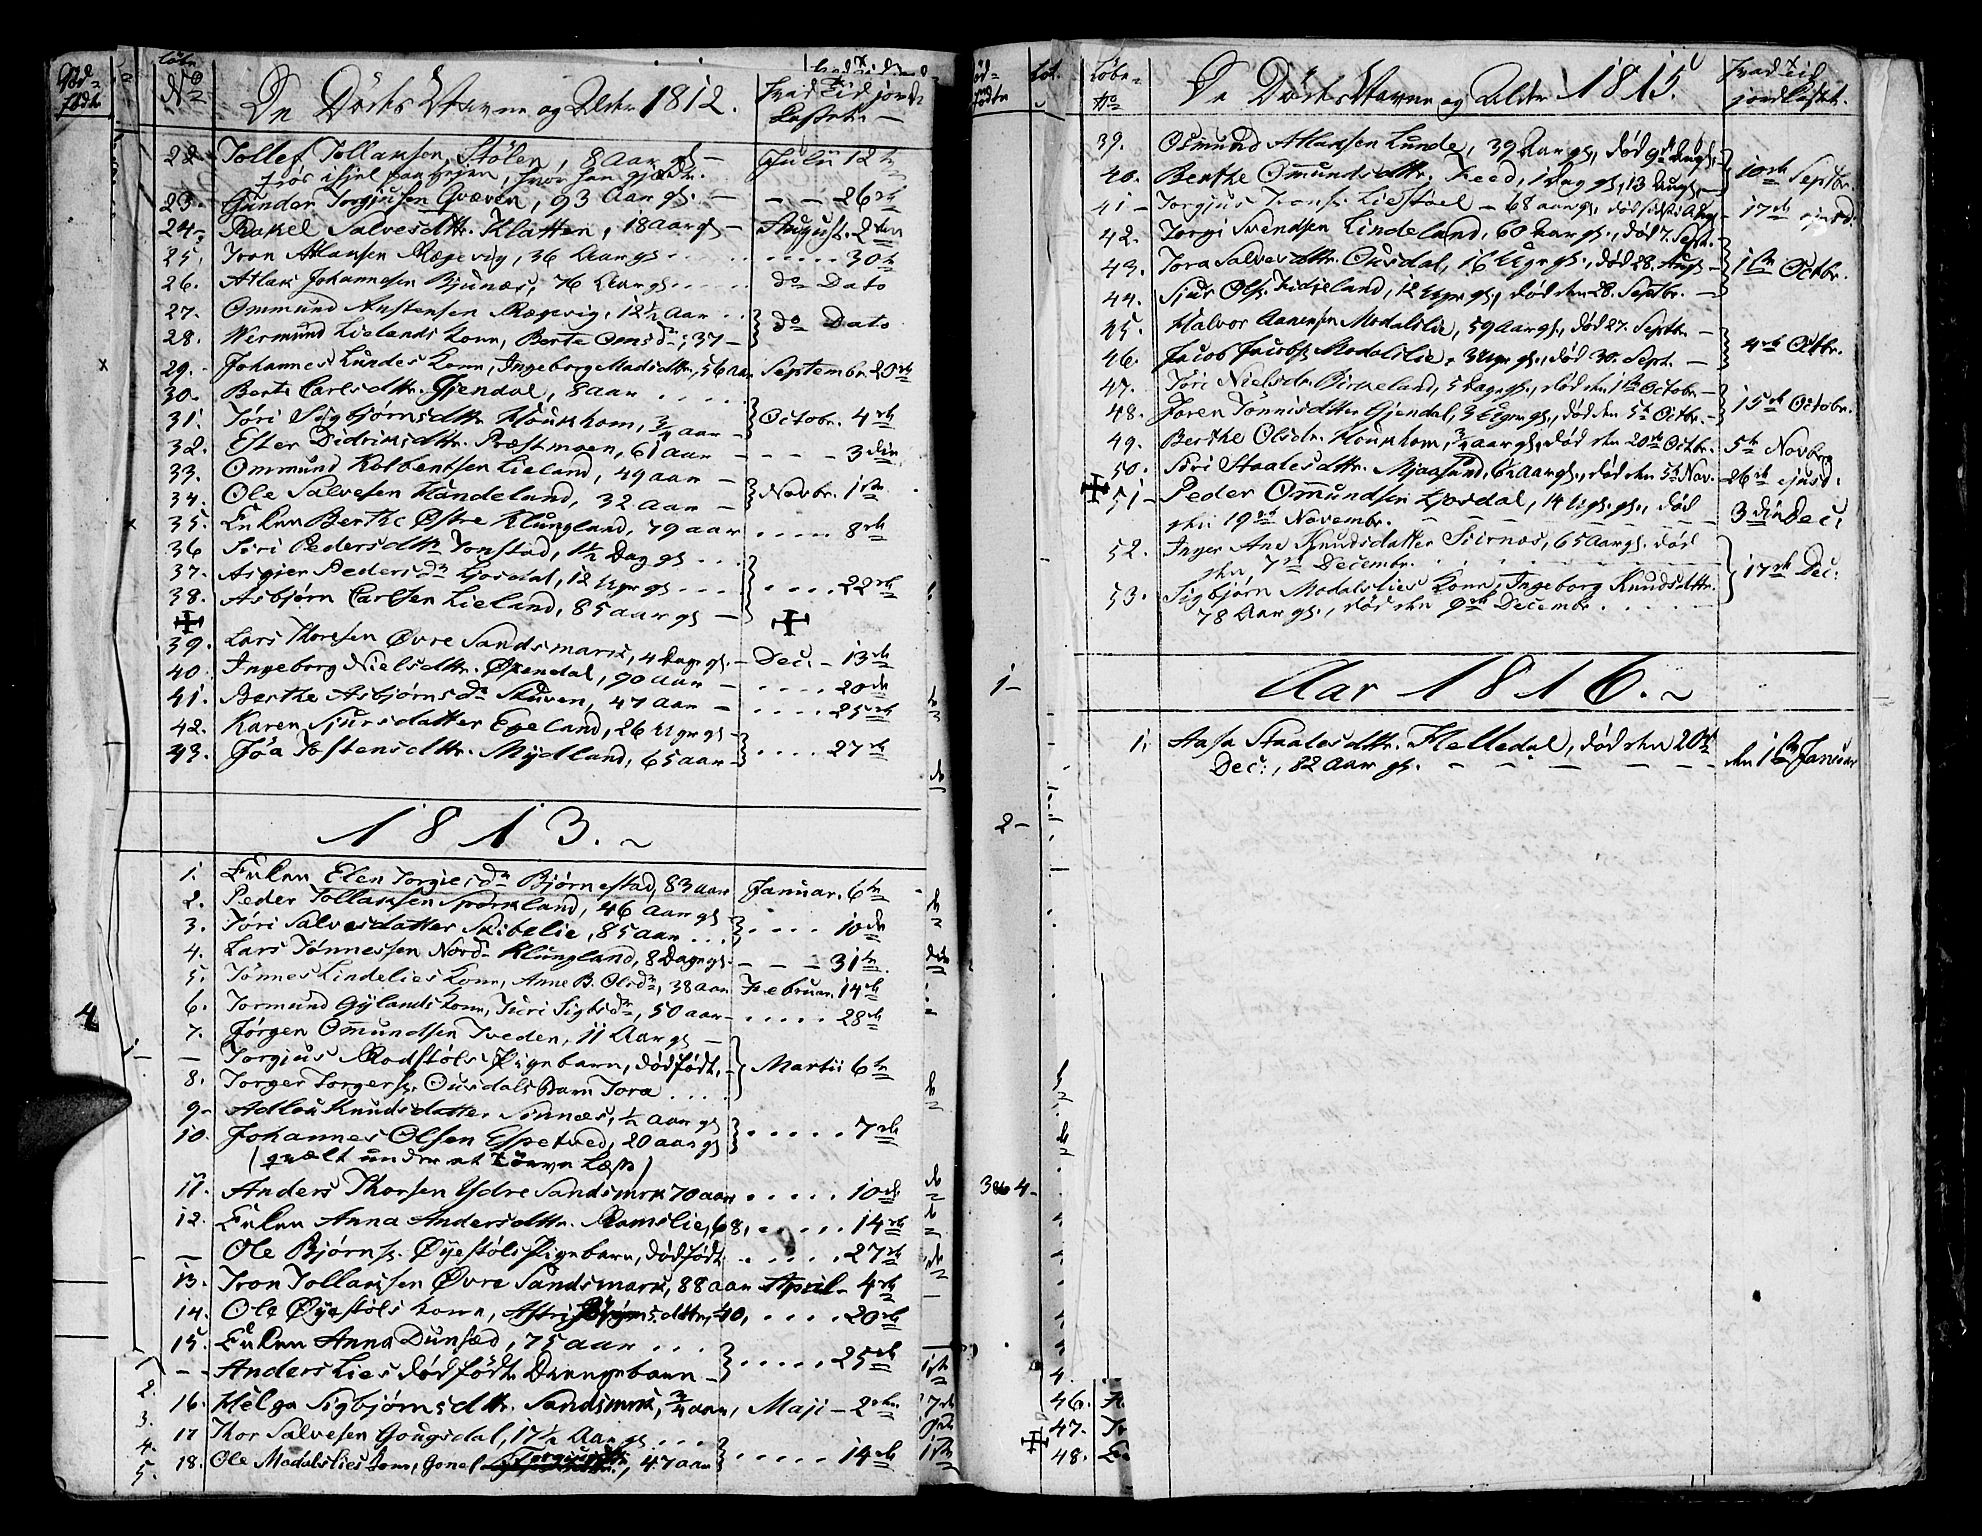 Løbe
No
De Dødes Navne og Alder 1812.
Hvad Tid jordfæstet
22. Tollef Tollaksen Stölen, 8 Aar gl. — Julii 12te
frös ihjel paa Heien, hvor han gjædte.
23. Gunder Torgiusen Qvæven, 93 Aar gl. — — — 26de
24. Rakel Salvesdttr. Klatten, 18 aar gl — August. 2den
25. Tron Atlaksen Rægevig, 36 Aar gl. . . . . 30te
26. Atlak Johannesen Bjunæs, 76 Aar gl. . . . . do Dato
27. Ommund Austensen Rægevig, 12½ Aar . .
28. Wermund Lielands Kone, Berte Omsdr., 37 — do Dato
29. Johannes Lundes Kone, Ingeborg Madsdttr., 56 Aar Septembr. 20de
30. Berte Carlsdttr. Gjendal, 8 aar . . . .
31. Töri Sigbjørnsdttr. Houkhom, ¾ aar — Octobr. 4de
32. Ester Didriksdttr. Præstmoen, 61 aar — — — — 3die
33. Ommund Kolbentsen Lieland, 49 aar —
34. Ole Salvesen Haadeland, 32 aar — Novbr. 1ste
35. Enken Berthe Østre Klungland, 79 aar . . . . 8de
36 Siri Pedersdttr. Tonstad, 1½ Dag gl . . .
37. Asgier Pedersdr. Liosdal, 12 Uger gl . . . . . . . 22de
38. Asbjørn Carlsen Lieland, 85 aar gl —
39. Lars Thoresen Øvre Sandsmark, 4 Dage gl. — Dec. — 13de
40. Ingeborg Nielsdttr. Øxendal, 90 aar — . . . . 20de
41. Berthe Asbjørnsdr. Skuven, 47 aar — . . . . 25de
42. Karen Sjursdatter Egeland, 26 Uger gl —
43. Jöa Tostensdttr. Mydland, 65 aar — . . . . 27de
1813. ~
1. Enken Elen Torgiesdr. Bjørnestad, 83 aar Januar. 6te
2. Peder Tollaksen Sporkland, 46 Aar gl
3. Töri Salvesdatter Skibelie, 85 aar . . . . . . . 10de
4. Lars Tønnessen Nordr. Klungland, 8 Dage gl. — — — 31te
5. Tønnes Lindelies Kone, Anne B. Olsdr., 38 aar Februar. 14de
6. Tormund Gylands kone, Siri Sigbsdr., 50 aar — . . . . . 28de
7. Jörgen Omundsen Tveden, 11 Aar gl —
— Torgius Rodstöls Pigebarn, dødfødt, — Martii 6te
8. Torger Torgers. Ousdals Barn Tora . . . .
9. Adlou Knudsdatter Sinnæs, ½ Aar gl
10. Johannes Olsen Espetved, 20 aar gl . . . . . 7de
(qvælt under et Tørve Læs)
11. Anders Thorsen Ydre Sandsmrk 70 aar . . . . . 10de
12. Enken Anna Andersdttr. Ramslie, 68, . . . . . 14de
— Ole Bjørns. Øyestöls Pigebarn, dødfødt . . . . . 27de
13. Tron Tollaksen Øvre Sandsmark, 88 aar April — 4de
14. Ole Øyestöls kone, Astri 40, . . . . 20de
15. Enken Anna Dunsæd, 75 aar . . .
— Anders Lies dødfödte Drengebarn — . . . . . 25de
16. Helga Sigbjørnsdttr. Sandsmrk, ¾ aar, Maji — 2den
17 Thor Salvesen Gougsdal, 17½ Aar gl . . .
18. Ole Modalslies kone, Gonel 47 aar . . . . . 14de
Løbe-
No
De Dødes Navne og Alder 1815.
Hvad Tid jordfæstet.
39. Osmund Atlaksen Lunde, 39 Aar gl., død 9de Augs. —
40. Berthe Omundsdttr. Feed, 1 Dag gl., 13 Augs. — 10de Septbr.
41 — Torgius Trons. Liestöel — 68 aar gl., død sidst i Aug. 17de ejusd:
42. Torgi Svendsen Lindeland, 60 Aar gl., død 7. Sept. —
43. Tora Salvesdttr. Ousdal, 16 Uger gl., død 28. Augs — 1ste Octbr.
44. Sjur Ols. Fidjeland, 12 Uger gl., død den 28. Septbr. —
45. Halvor Aanensen Modalslie, 59 aar gl., død 27. Septr. —
46. Jacob Jacobs. Modalslie, 3 Uger gl., død 30. Sept. — 4de Octbr.
47. Töri Nielsdr. Birkeland, 5 Dage gl., død den 1ste Octobr —
48. Joren Tönnisdtter Gjendal, 3 Uger gl., død den 5te Octbr. — 15de Octobr.
49. Berthe Olsdr. Houkhom, ¾ aar gl., død den 20de Octbr. 5te Novbrg
50. Siri Staalesdttr. Mjaasund, 6½ aar gl., død den 5te Nov. 26de ejusd:
51 — Peder Omundsen Liosdal, 14 Ugr. gl., død
den 19de Novembr. — — — 3die Dec:
52. Inger Ane Knudsdatter Siirnæs, 65 Aar gl. død
den 7de Decembr. . . . . . . 17de Dec:
53. Sigbjørn Modalslies Kone, Ingeborg Knudsdttr.
78 Aar gl., død den 9de Decembr. . . . . .
Aar 1816. ~
1. Aasa Staalesdttr. Helledal, død den 20de
Dec:, 82 Aar gl. — — — — — — den 1ste Januar
46.
47.
48.